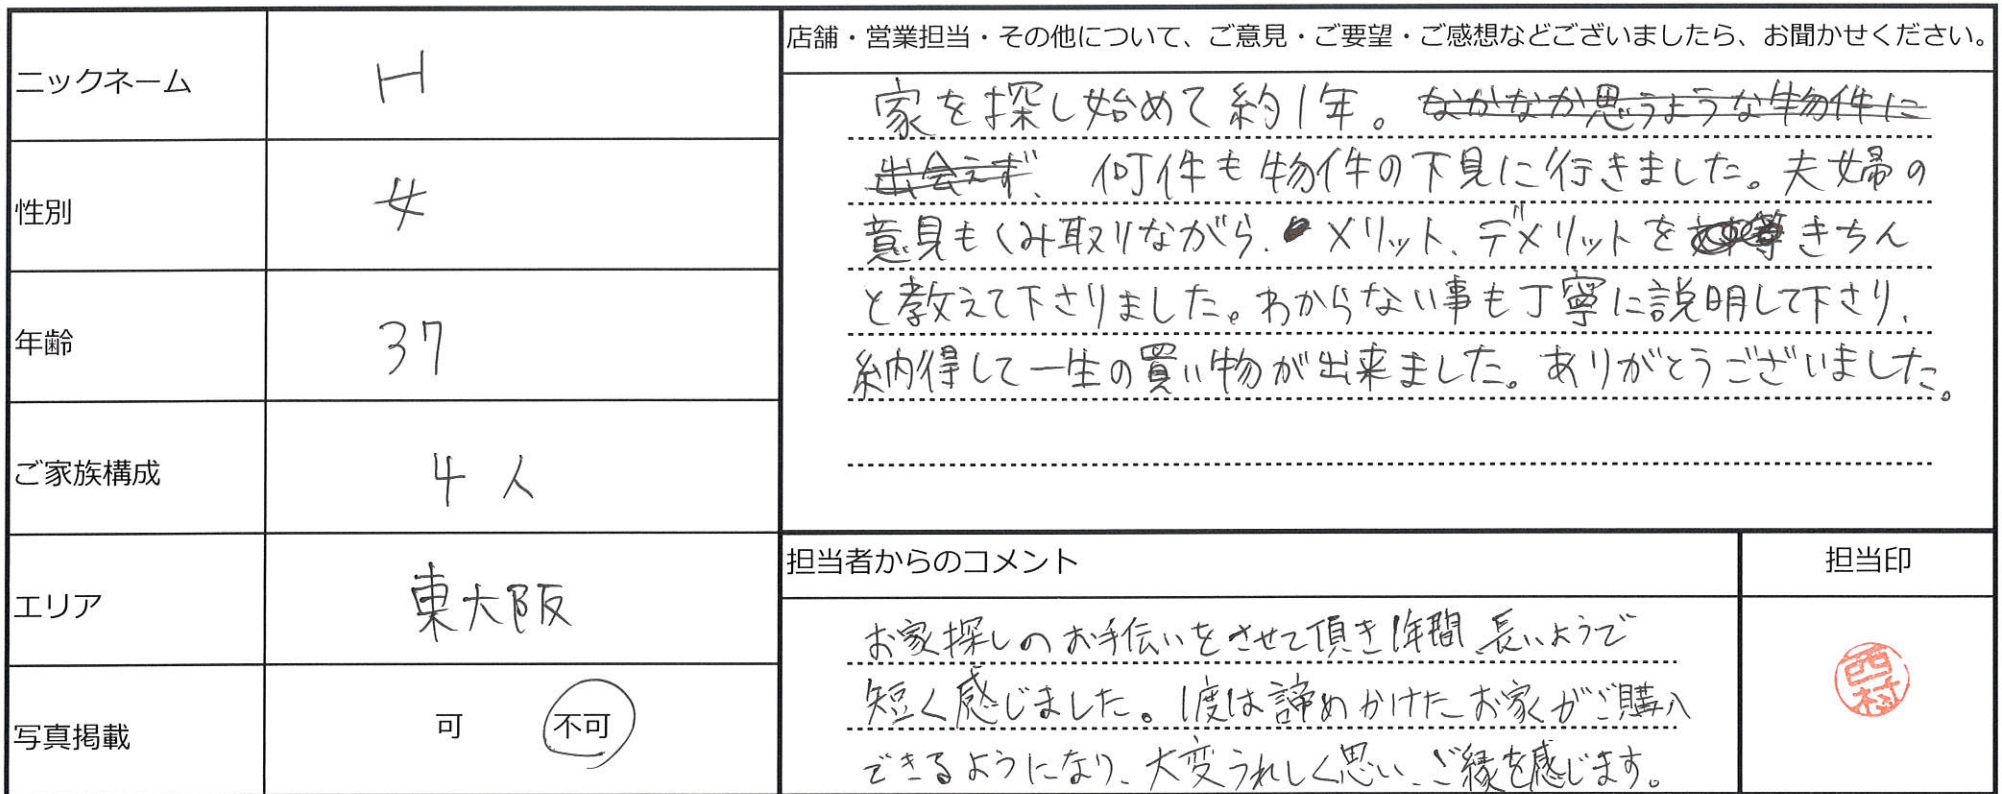 ニックネーム
H
性別
女
年齢
37
ご家族構成
4人
エリア
東大阪
写真掲載
可 不可
店舗・営業担当・その他について、ご意見・ご要望・ご感想などございましたら、お聞かせください。
家を探し始めて約1年。なかなか思うような物件に
出会えず、何件も物件の下見に行きました。夫婦の
意見もくみ取りながら、メリット、デメリットをきちん
と教えて下さりました。わからない事も丁寧に説明して下さり、
納得して一生の買い物が出来ました。ありがとうございました。
担当者からのコメント
お家探しのお手伝いをさせて頂き1年間、長いようで
短く感じました。1度は諦めかけたお家がご購入
できるようになり、大変うれしく思い、ご縁を感じます。
担当印
西村